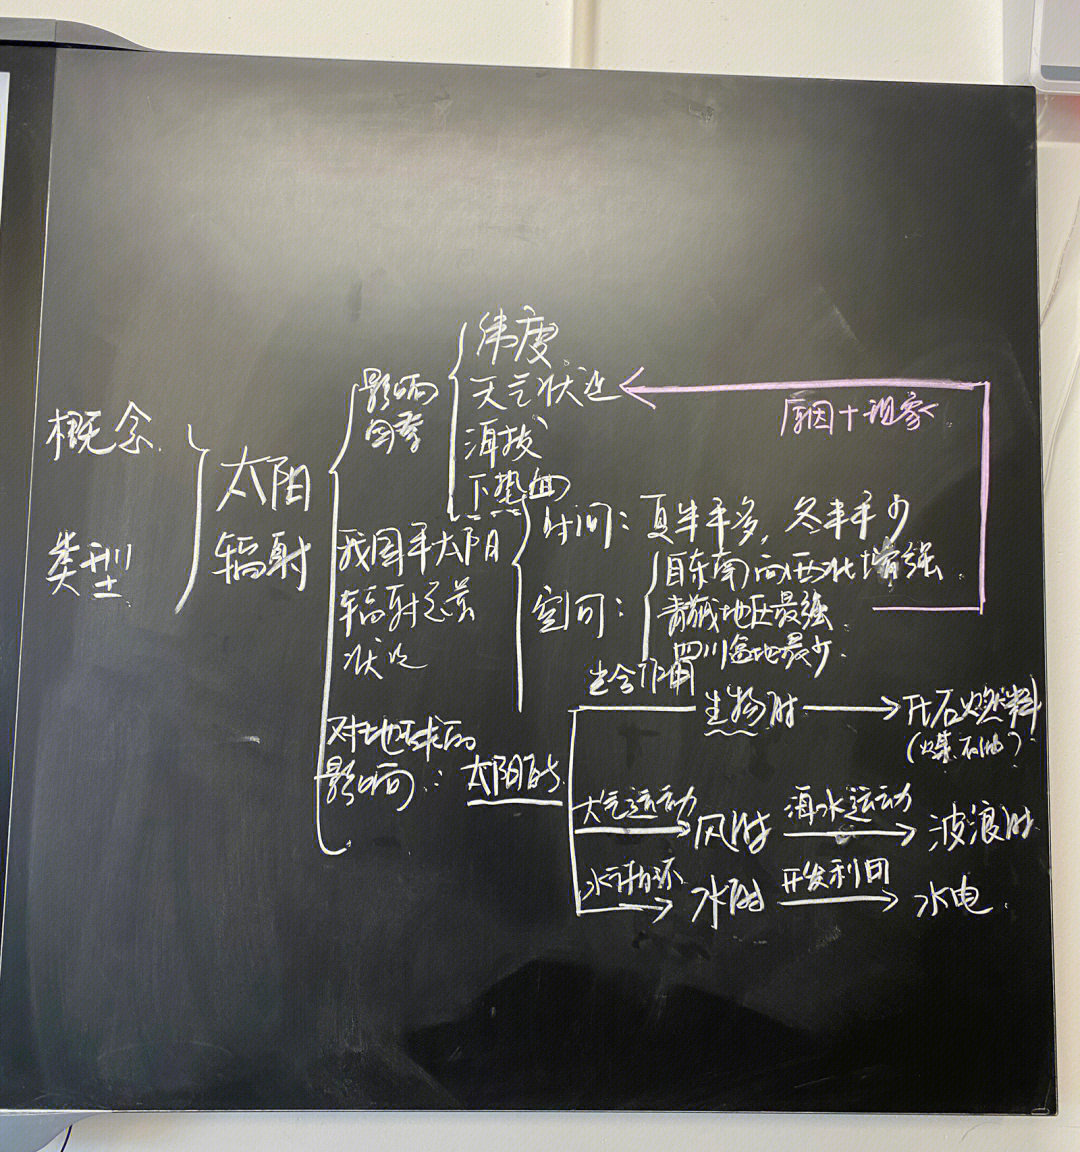 概念
类型
太阳
辐射
影响
因素
纬度
天气状况
海拔
下垫面
原因+现象
我国年太阳
辐射总量
状况
时间：夏半年多，冬半年少
空间：
自东南向西北增强
青藏地区最强
四川盆地最少
对地球的
影响：太阳能
光合作用
生物能
化石燃料
（煤石油）
大气运动
风能
海水运动
波浪能
水循环
水能
开发利用
水电